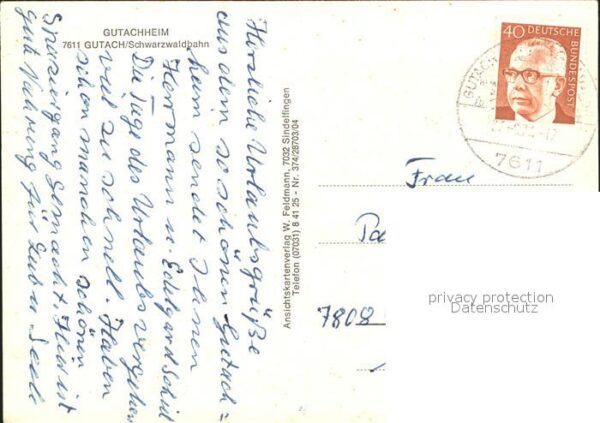 GUTACHHEIM
7611 GUTACH/Schwarzwaldbahn
Herzliche Urlaubsgrüße
aus dem so schönen Gutach=
heim sendet Ihnen
Hermann u. Edelgard
Die Tage des Urlaubs vergehen
viel zu schnell. Haben
schon manchen schönen
Spaziergang gemacht. Hier ist
gute Nahrung für Leib u. Seele
Ansichtskartenverlag W. Feldmann, 7032 Sindelfingen
Telefon (07031) 8 41 25 - Nr. 374/28703/04
40 DEUTSCHE BUNDESPOST
GUTACH
7611
Frau
7808
privacy protection
Datenschutz